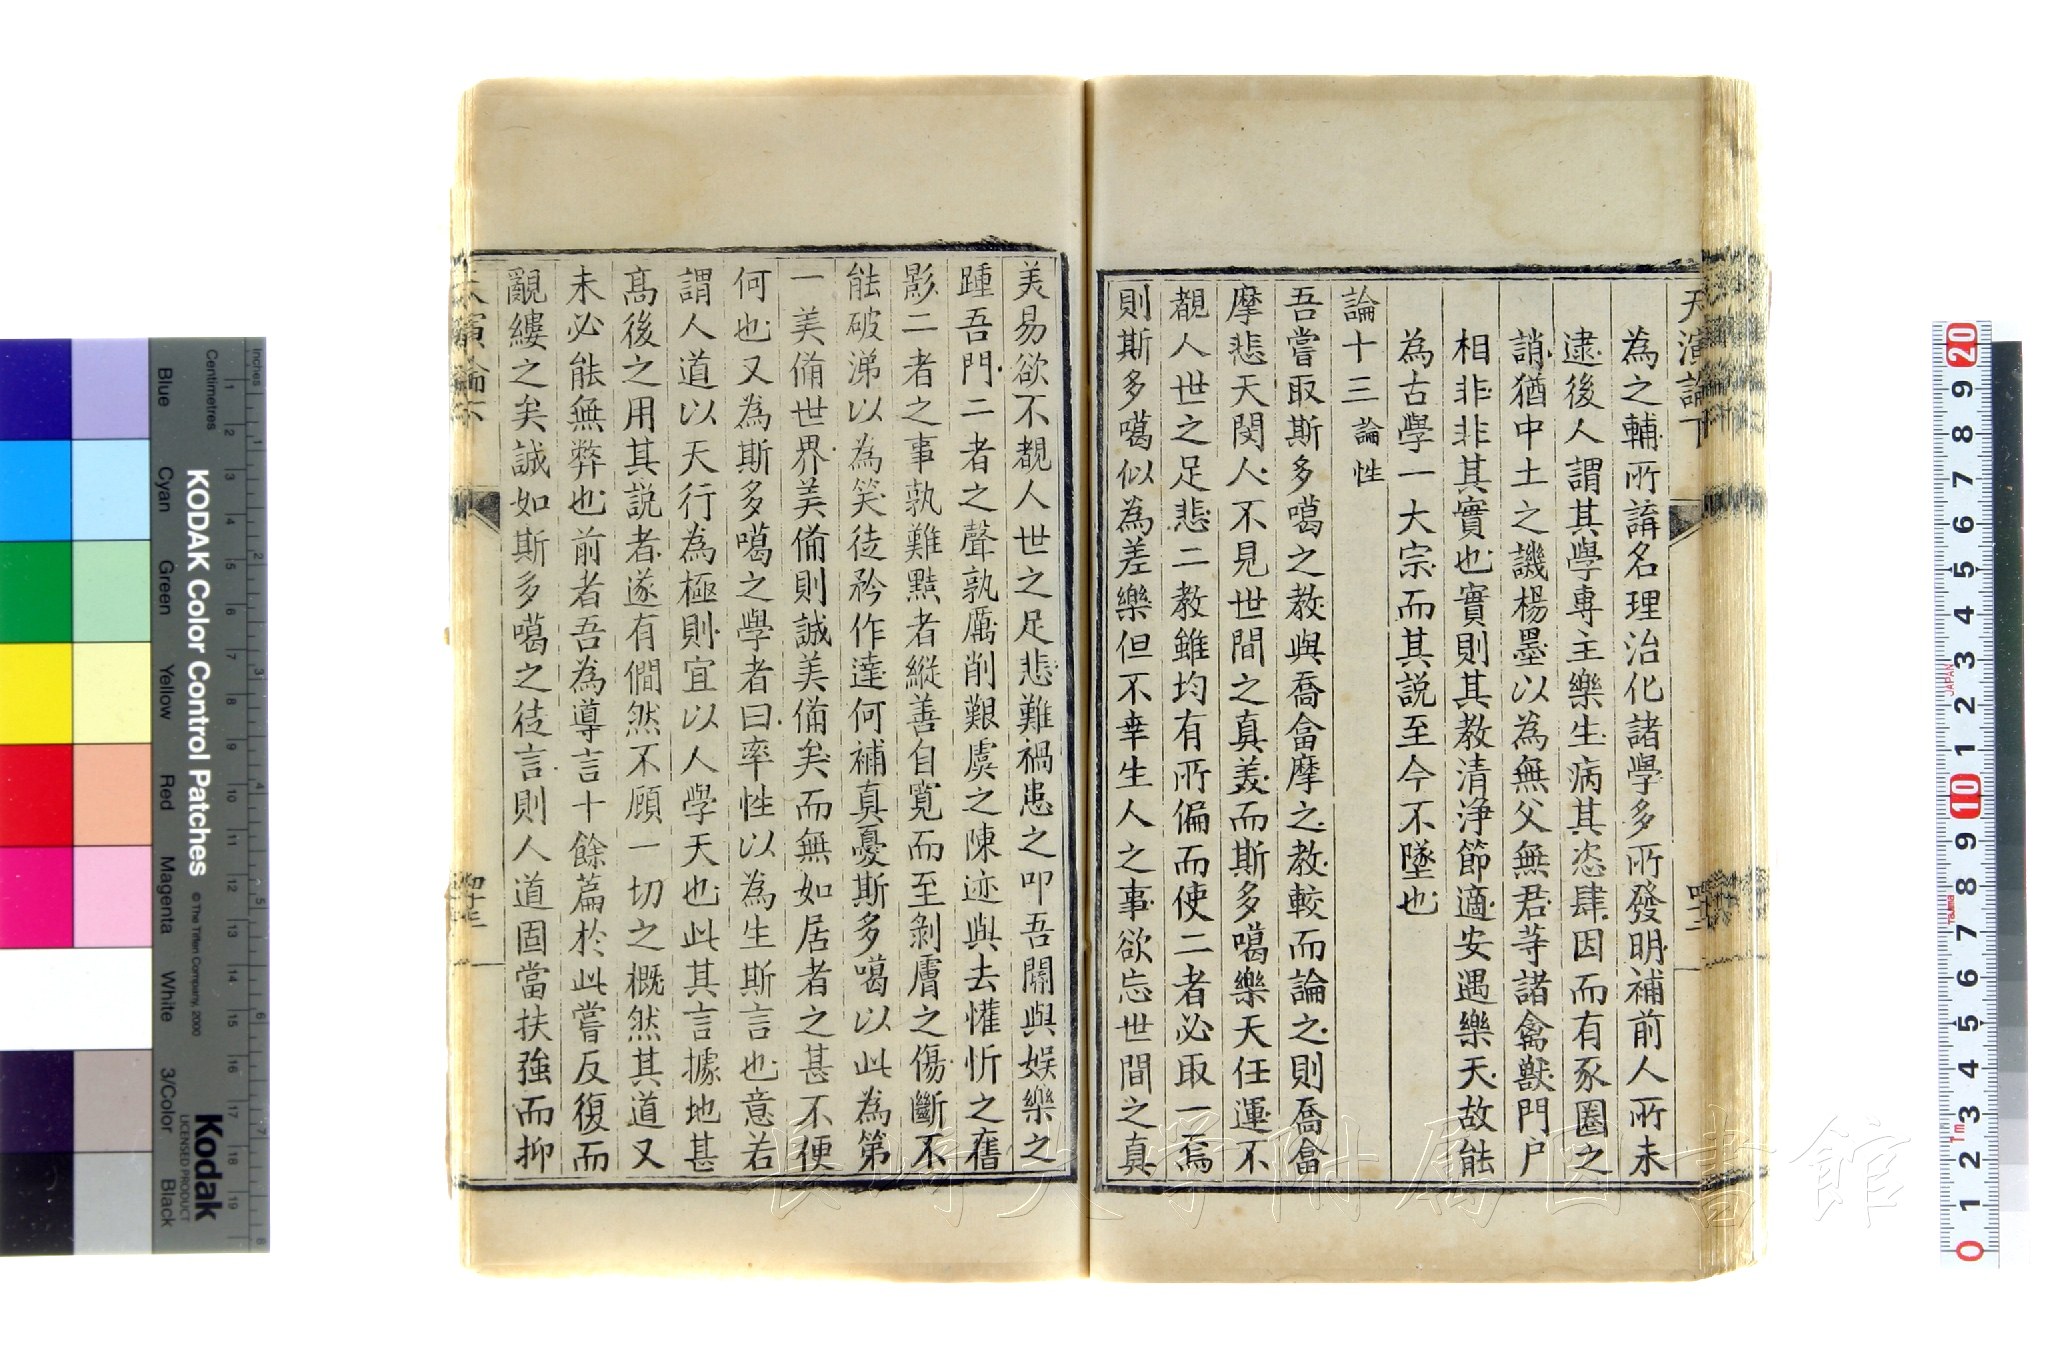 天演論下
為之輔所講名理治化諸學多所發明補前人所未
逮後人謂其學專主樂生病其恣肆因而有豕圈之
誚猶中土之譏楊墨以為無父無君等諸禽獸門户
相非非其實也實則其教清淨節適安遇樂天故能
為古學一大宗而其説至今不墜也
論十三論性
吾嘗取斯多噶之教與喬畣摩之教較而論之則喬畣
摩悲天閔人不見世間之真美而斯多噶樂天任運不
覩人世之足悲二教雖均有所偏而使二者必取一焉
則斯多噶似為差樂但不幸生人之事欲忘世間之真
美易欲不覩人世之足悲難禍患之叩吾閽與娛樂之
踵吾門二者之聲孰厲削艱虞之陳迹與去懽忻之舊
影二者之事孰難黠者縱善自寛而至剝膚之傷斷不
能破涕以為笑徒矜作達何補真憂斯多噶以此為第
一美備世界美備則誠美備矣而無如居者之甚不便
何也又為斯多噶之學者曰率性以為生斯言也意若
謂人道以天行為極則宜以人學天也此其言據地甚
髙後之用其説者遂有僩然不顧一切之概然其道又
未必能無弊也前者吾為導言十餘篇於此嘗反復而
覼縷之矣誠如斯多噶之徒言則人道固當扶強而抑
天演論下
KODAK Color Control Patches
© The Tiffen Company, 2000
Kodak
LICENSED PRODUCT
Inches
Centimetres
Blue
Cyan
Green
Yellow
Red
Magenta
White
3/Color
Black
長崎大學附屬図書館
JAPAN
Tajima